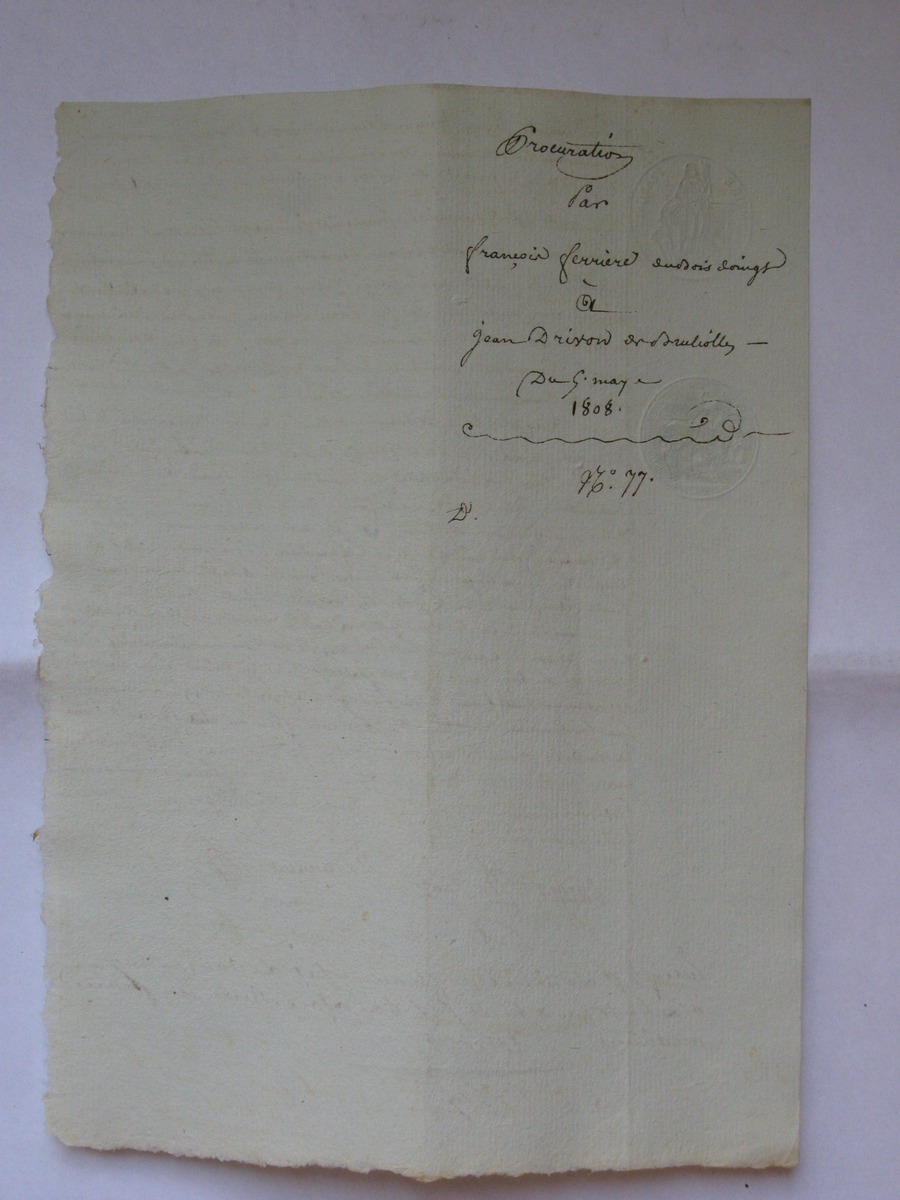 Procuration
Par
françois ferriere du bois doingt
à
jean Drivon de Brullolles —
Du 5. may
1808.
N.º 77.
D.